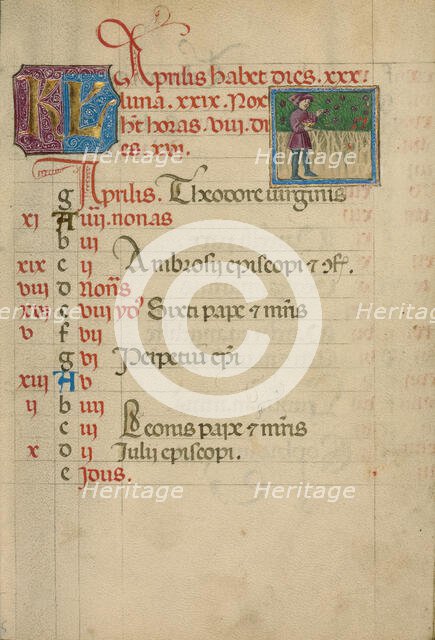 KL Aprilis habet dies. xxx.
luna. xxix. Nox
ht horas. viii. di
es. xvi.
g Aprilis. Theodore virginis
xi A iiii. nonas
b iii
xix c ii Ambrosii episcopi &
viii d Nons
e viii yd' Sixti pape & mris
v f vii
g vi Perpetui epi
xiii A v
ii b iiii
c iii Leonis pape & mris
x d ii Julii episcopi.
e Idus.
Heritage Heritage Heritage
Heritage Heritage Heritage
Heritage Heritage Heritage